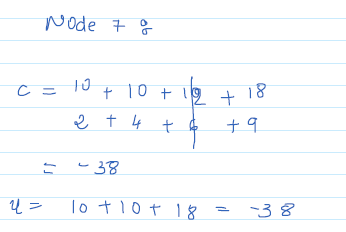 Node 7 g
c = 10 + 10 + 12 + 18
2 + 4 + 6 + 9
= -38
u = 10 + 10 + 18 = -38